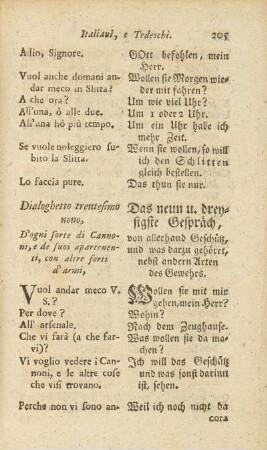 Italiani, e Tedeschi. 205
Adio, Signore.
Vuol anche domani an-
dar meco in Slitta?
A che ora?
All'una, ò alle due.
All'una hò più tempo.
Se vuole noleggiero su-
bito la Slitta.
Lo faccia pure.
Dialoghetto trentesimo
nono,
D'ogni sorte di Canno-
ni, e de suoi apartenen-
ti, con altre sorti
d'armi,
Vuol andar meco V.
S.?
Per dove?
All' arsenale.
Che vi farà (a che far-
vi)?
Vi voglio vedere i Can-
noni, e le altre cose
che visi trovano.
Perche non vi sono an-
GOtt befohlen, mein
Herr.
Wollen sie Morgen wie-
der mit fahren?
Um wie viel Uhr?
Um 1 oder 2 Uhr.
Um ein Uhr habe ich
mehr Zeit.
Wenn sie wollen, so will
ich den Schlitten
gleich bestellen.
Das thun sie nur.
Das neun u. drey-
sigste Gespräch,
von allerhand Geschütz,
und was darzu gehöret,
nebst andern Arten
des Gewehrs.
Wollen sie mit mir
gehen, mein Herr?
Wohin?
Nach dem Zeughause.
Was wollen sie da ma-
chen?
Ich will das Geschütz
und was sonst darinn
ist, sehen.
Weil ich noch nicht da
cora